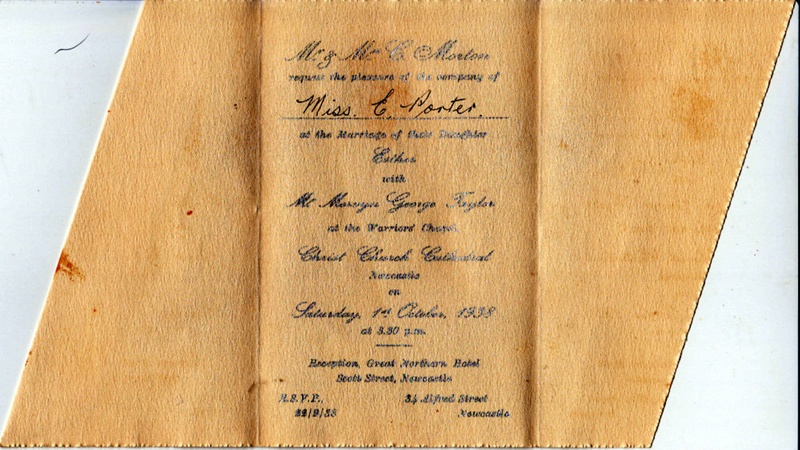 Mr. & Mrs. C. Morton
request the pleasure of the company of
Miss. E. Porter.
at the Marriage of their Daughter
Esther
with
Mr. Mervyn George Taylor
at the Warriors' Chapel
Christ Church Cathedral
Newcastle
on
Saturday, 1st October, 1938
at 3.30 p.m.
Reception, Great Northern Hotel
Scott Street, Newcastle
R.S.V.P.,
34 Alfred Street
22/9/38
Newcastle